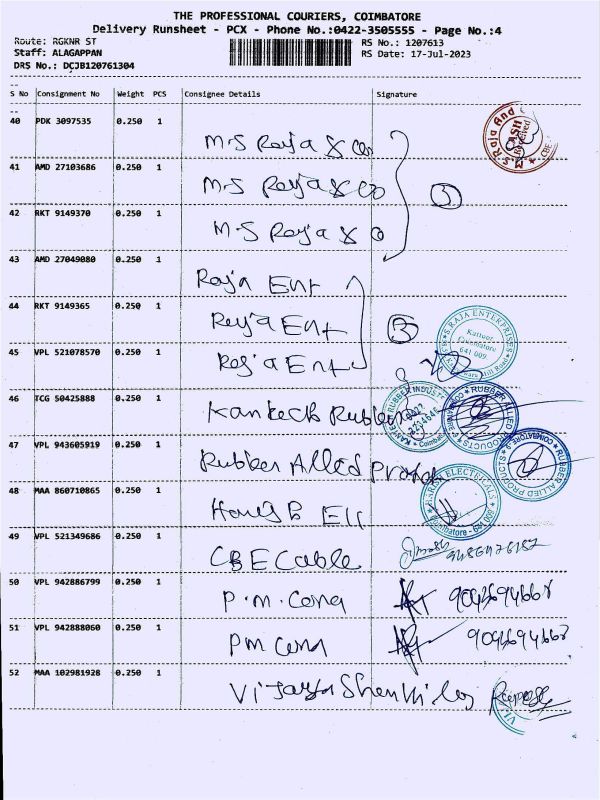 THE PROFESSIONAL COURIERS, COIMBATORE
Delivery Runsheet - PCX - Phone No.:0422-3505555 - Page No.:4
Route: RGKNR ST RS No.: 1207613
Staff: ALAGAPPAN RS Date: 17-Jul-2023
DRS No.: DCJB120761304
S No Consignment No Weight PCS Consignee Details Signature
40 PDK 3097535 0.250 1
M.S Raja & Co
41 AMD 27103686 0.250 1
M.S Raja & Co
3
42 RKT 9149370 0.250 1
M.S Raja & Co
43 AMD 27049080 0.250 1
Raja Ent
44 RKT 9149365 0.250 1
Raja Ent
3
S. RAJA ENTERPRISES
Kattoor,
Coimbatore
641 009.
45 VPL 521078570 0.250 1
Raja Ent
46 TCG 50425888 0.250 1
Rubber
RUBBER INDUST
RUBBER ALLIED PRODUCTS COIMBATORE
47 VPL 943605919 0.250 1
Rubber Allied Produ
RUBBER ALLIED PRODUCTS COIMBATORE
48 MAA 860710865 0.250 1
ELECTRICALS
Coimbatore - 641 009
49 VPL 521349686 0.250 1
CBE Cable
50 VPL 942886799 0.250 1
P.M. Cona 9042694668
51 VPL 942888060 0.250 1
PM Cona 9042694668
52 MAA 102981928 0.250 1
Vijaya